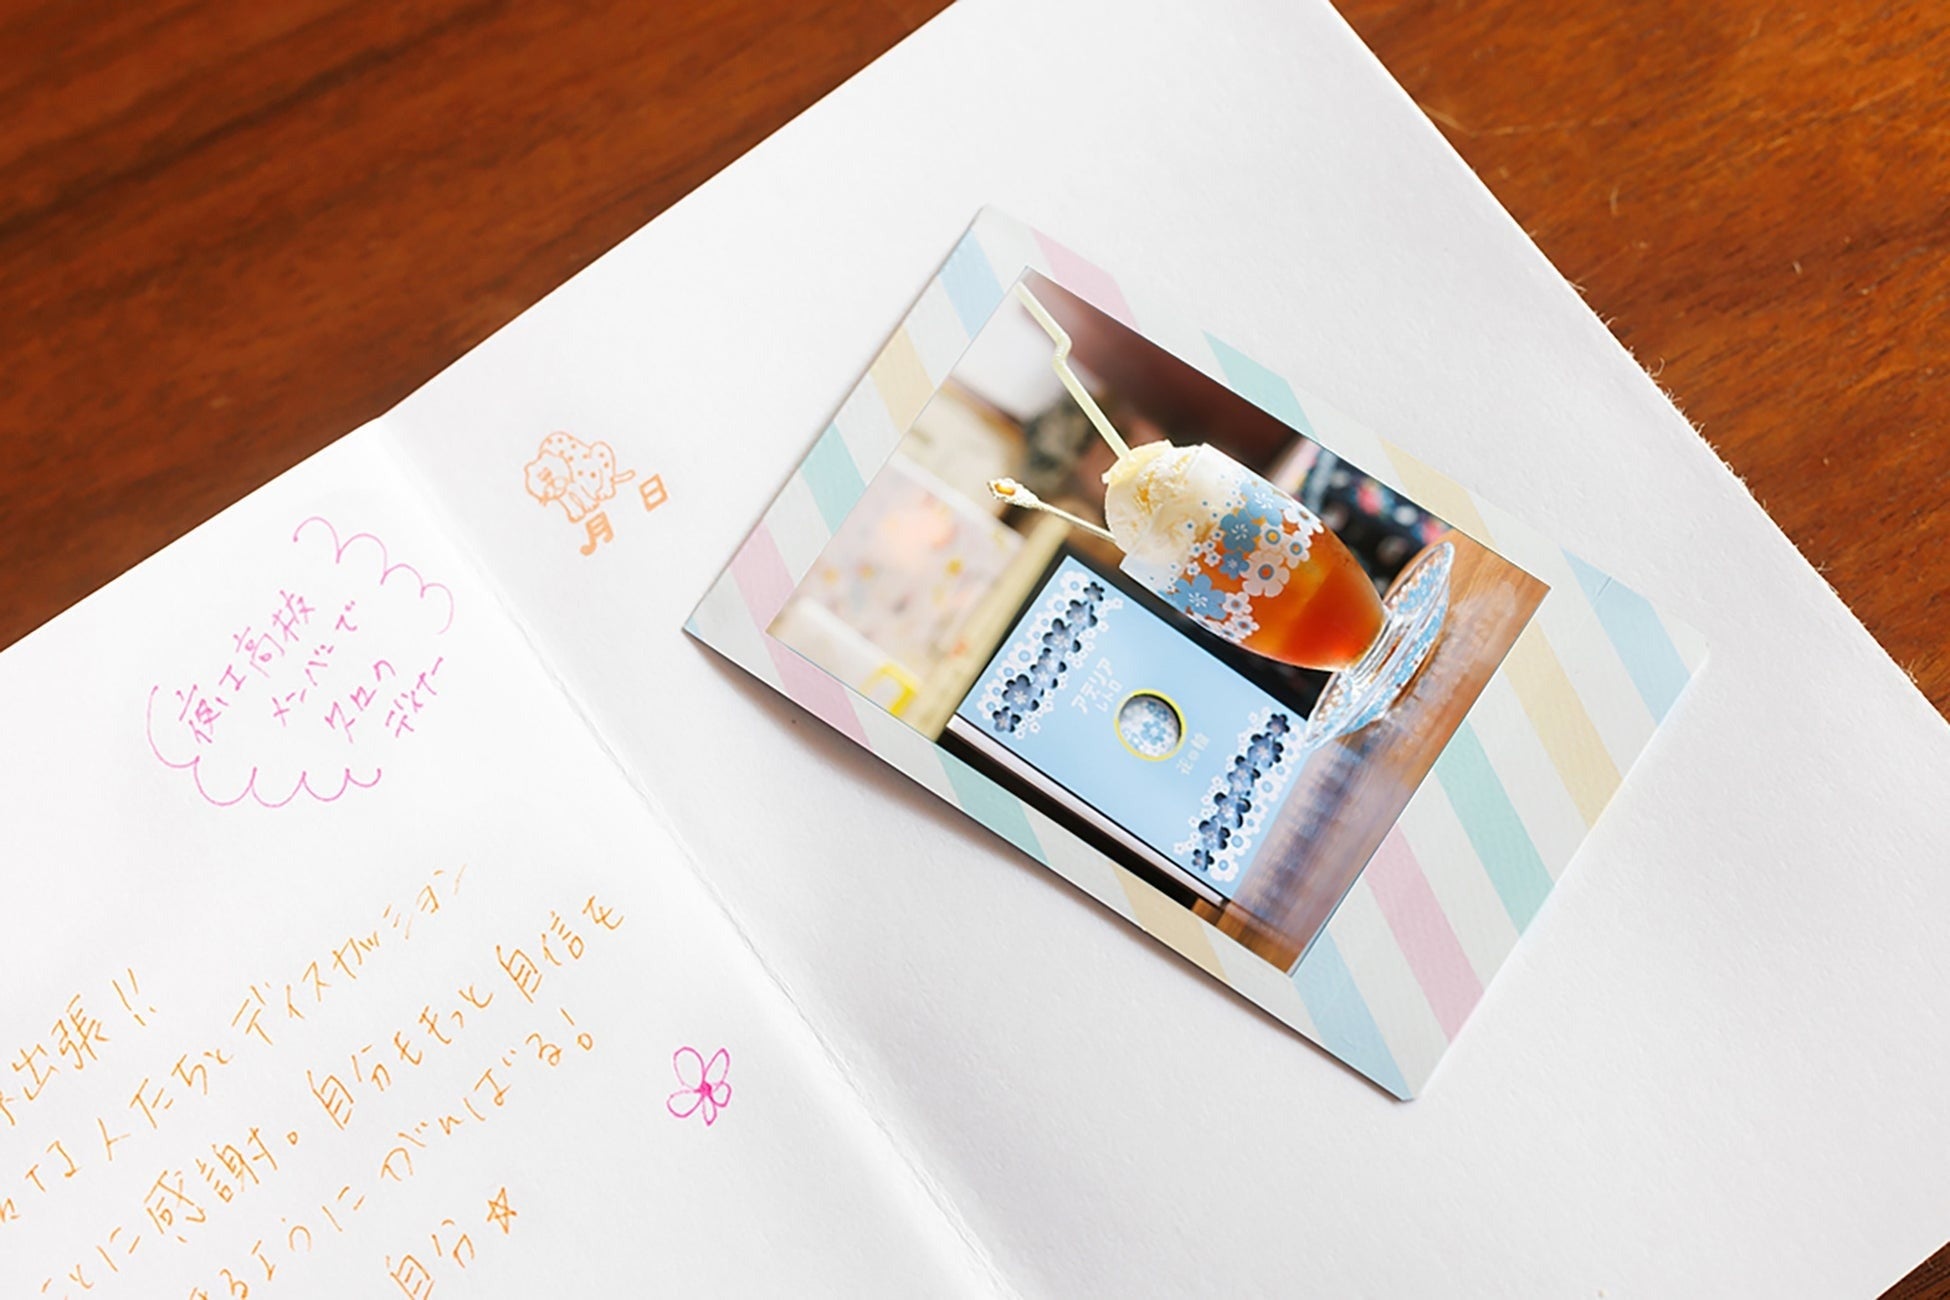 夜は高校
メンバーで
ワロク
ディナー
出張!!
な人たちとディスカッション
ことに感謝。自分ももっと自信を
るようにがんばる!
自分☆
月 日
アデリア
レトロ
花の輪